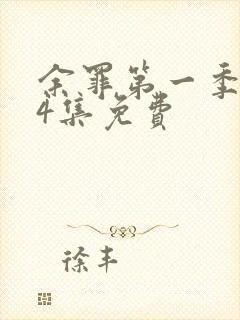 余罪第一季
4集免费
徐丰